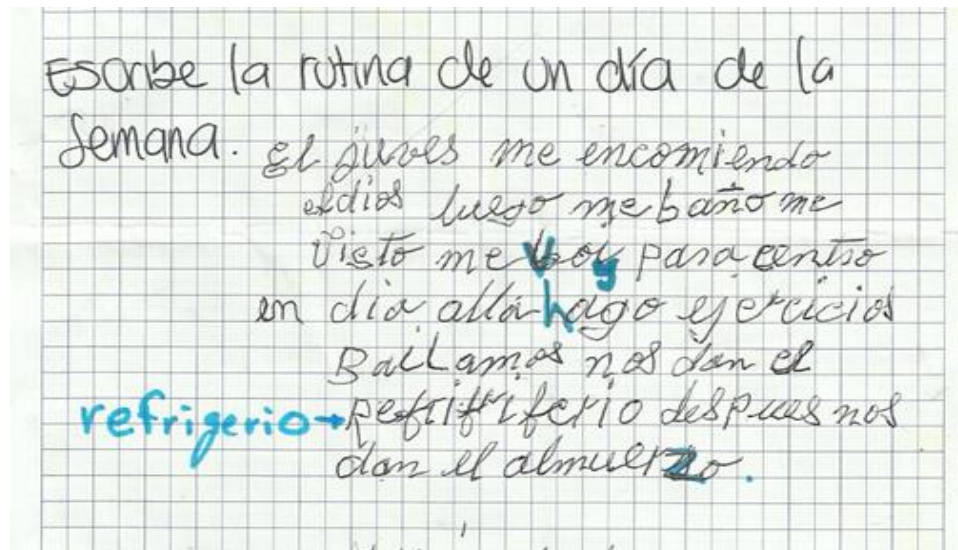 Escribe la rutina de un día de la
semana. El jueves me encomiendo
el dios luego me baño me
visto me voy para centro
en dia alla hago ejercicios
Baillamos nos dan el
refrigerio → refrifriferio despues nos
dan el almuerzo.